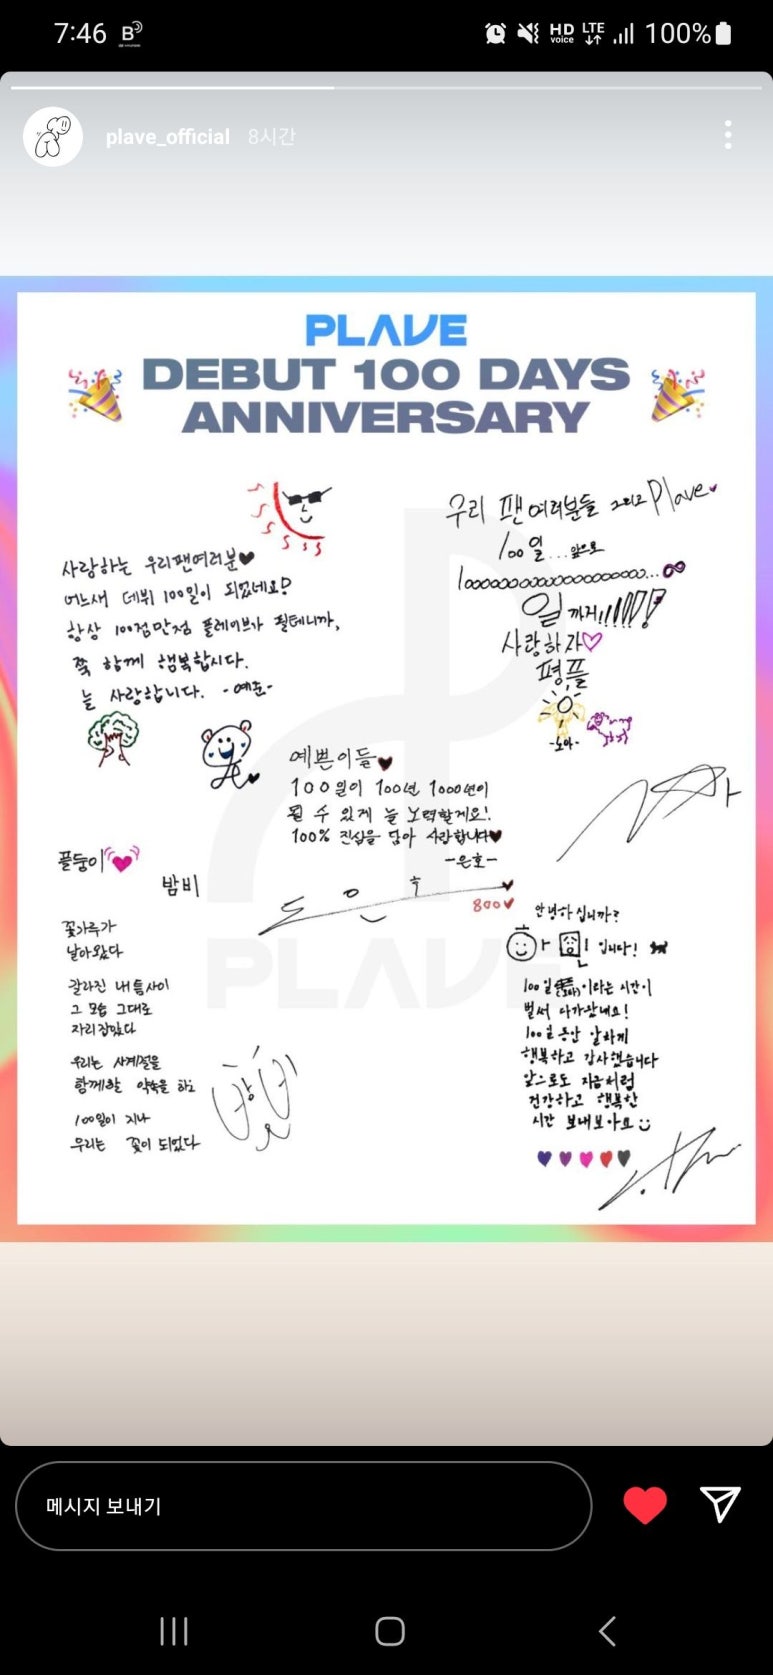 7:46
HD voice
LTE
100%
plave_official 8시간
PLAVE
DEBUT 100 DAYS
ANNIVERSARY
사랑하는 우리팬여러분♥
어느새 데뷔 100일이 되었네요!
항상 100점만점 플레이브가 될테니까,
쭉 함께 행복합시다.
늘 사랑합니다. -예준-
우리 팬여러분들 그리고 Plave♥
100일...앞으로
1000000000000000000...∞
일까지!!!!!!!
사랑하자♡
평플
-노아-
예쁜이들♥
100일이 100년 1000년이
될 수 있게 늘 노력할게요!
100% 진심을 담아 사랑합니다♥
-은호-
도은호
800♥
플둥이
밤비
꽃가루가
날아왔다
갈라진 내 틈사이
그 모습 그대로
자리잡았다
우리는 사계절을
함께할 약속을 하고
100일이 지나
우리는 꽃이 되었다
안녕하십니까?
하민입니다!
100일이라는 시간이
벌써 다가왔네요!
100일동안 알차게
행복하고 감사했습니다
앞으로도 지금처럼
건강하고 행복한
시간 보내보아요
PLAVE
메시지 보내기